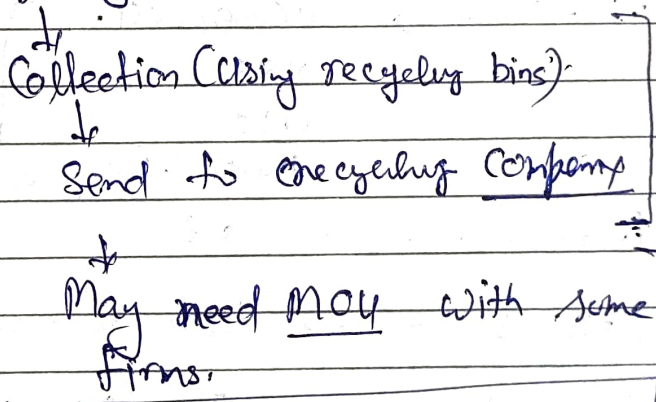 ↓
Collection (Using recycling bins).
↓
Send to recycling Company
↓
May need MOU with some
firms.